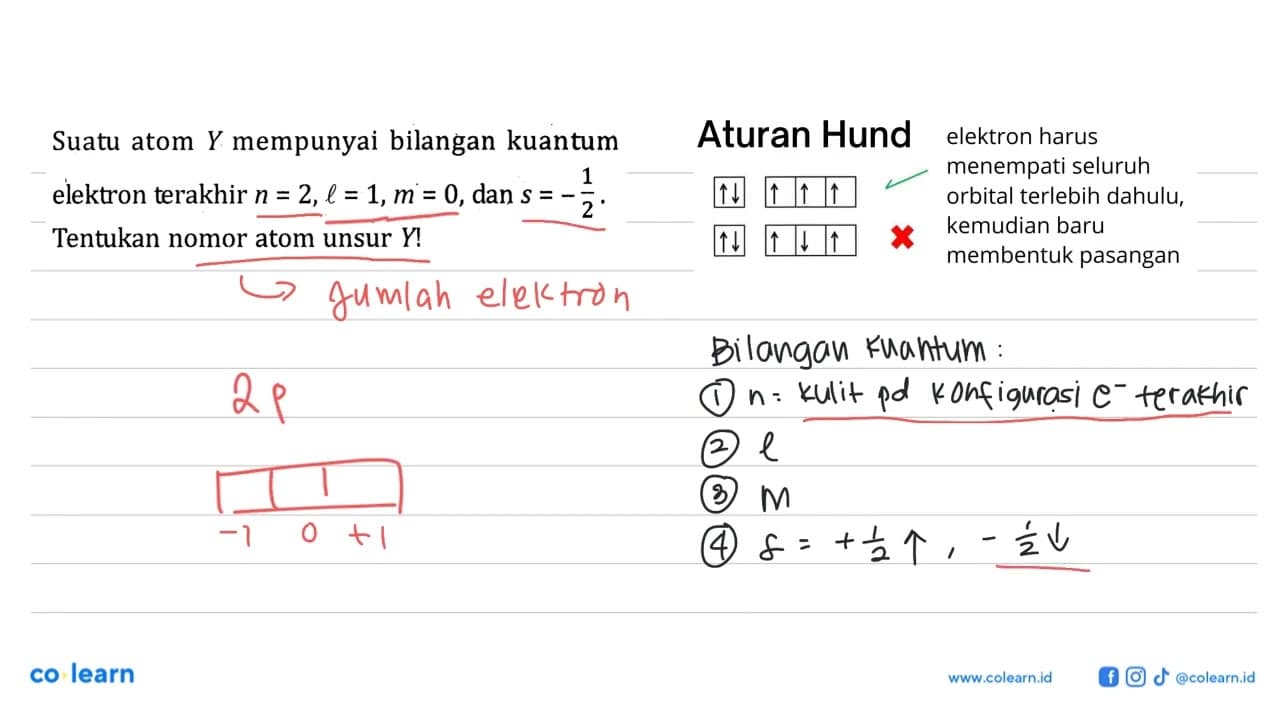 Suatu atom Y mempunyai bilangan kuantum
elektron terakhir n = 2, ℓ = 1, m = 0, dan s = -1/2.
Tentukan nomor atom unsur Y!
↳ Jumlah elektron
2p
-1 0 +1
Aturan Hund
elektron harus
menempati seluruh
orbital terlebih dahulu,
kemudian baru
membentuk pasangan
↑↓ ↑ ↑ ↑
↑↓ ↑ ↓ ↑
Bilangan Kuantum :
① n = kulit pd konfigurasi e⁻ terakhir
② ℓ
③ m
④ s = +1/2 ↑, -1/2 ↓
co learn
www.colearn.id
@colearn.id